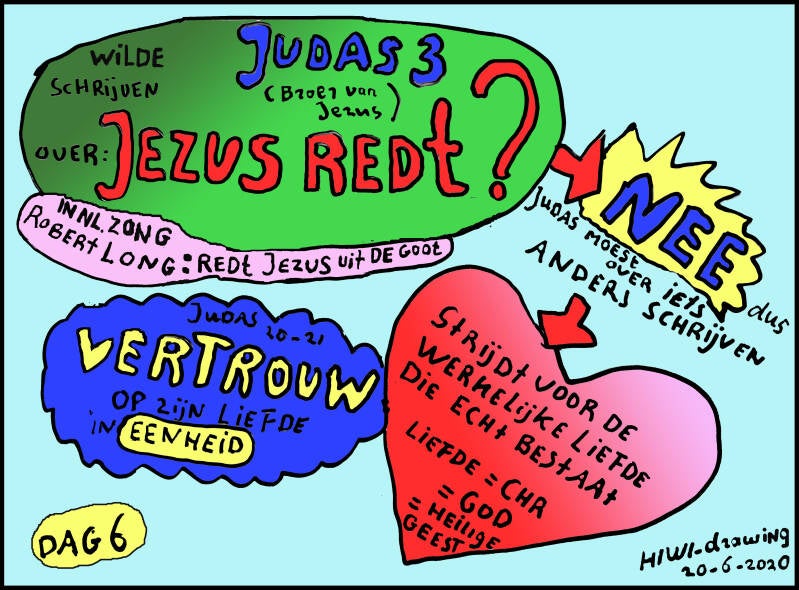 WILDE
SCHRIJVEN
JUDAS 3
(Broer van
Jezus)
OVER: JEZUS REDt?
IN NL. ZONG
RobERt LONG: REDt JEZUS uit DE GOOT
NEE dus
JUDAS MOEST
OVER IETS
ANDERS SCHRIJVEN
JUDAS 20-21
VERTROUW
OP ZIJN LIEFDE
IN EENHEID
STRIJDT VOOR DE
WERKELIJKE LIEFDE
DIE ECHT BESTAAT
LIEFDE = CHR
= GOD
= HEILIGE
GEEST
DAG 6
HIWI-drawing
20-6-2020